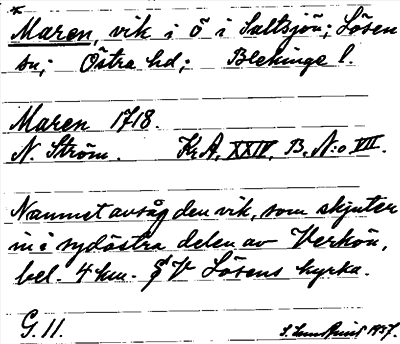 *
Maren, vik i ö i Saltsjön; Lösen
sn; Östra hd; Blekinge l.
Maren 1718.
N. Ström. Kr.A. XXIV. B. N:o VII.
Namnet avsåg den vik, som skjuter
in i sydöstra delen av Verkön,
bel. 4 km. V Lösens kyrka.
G. 11. 1937.